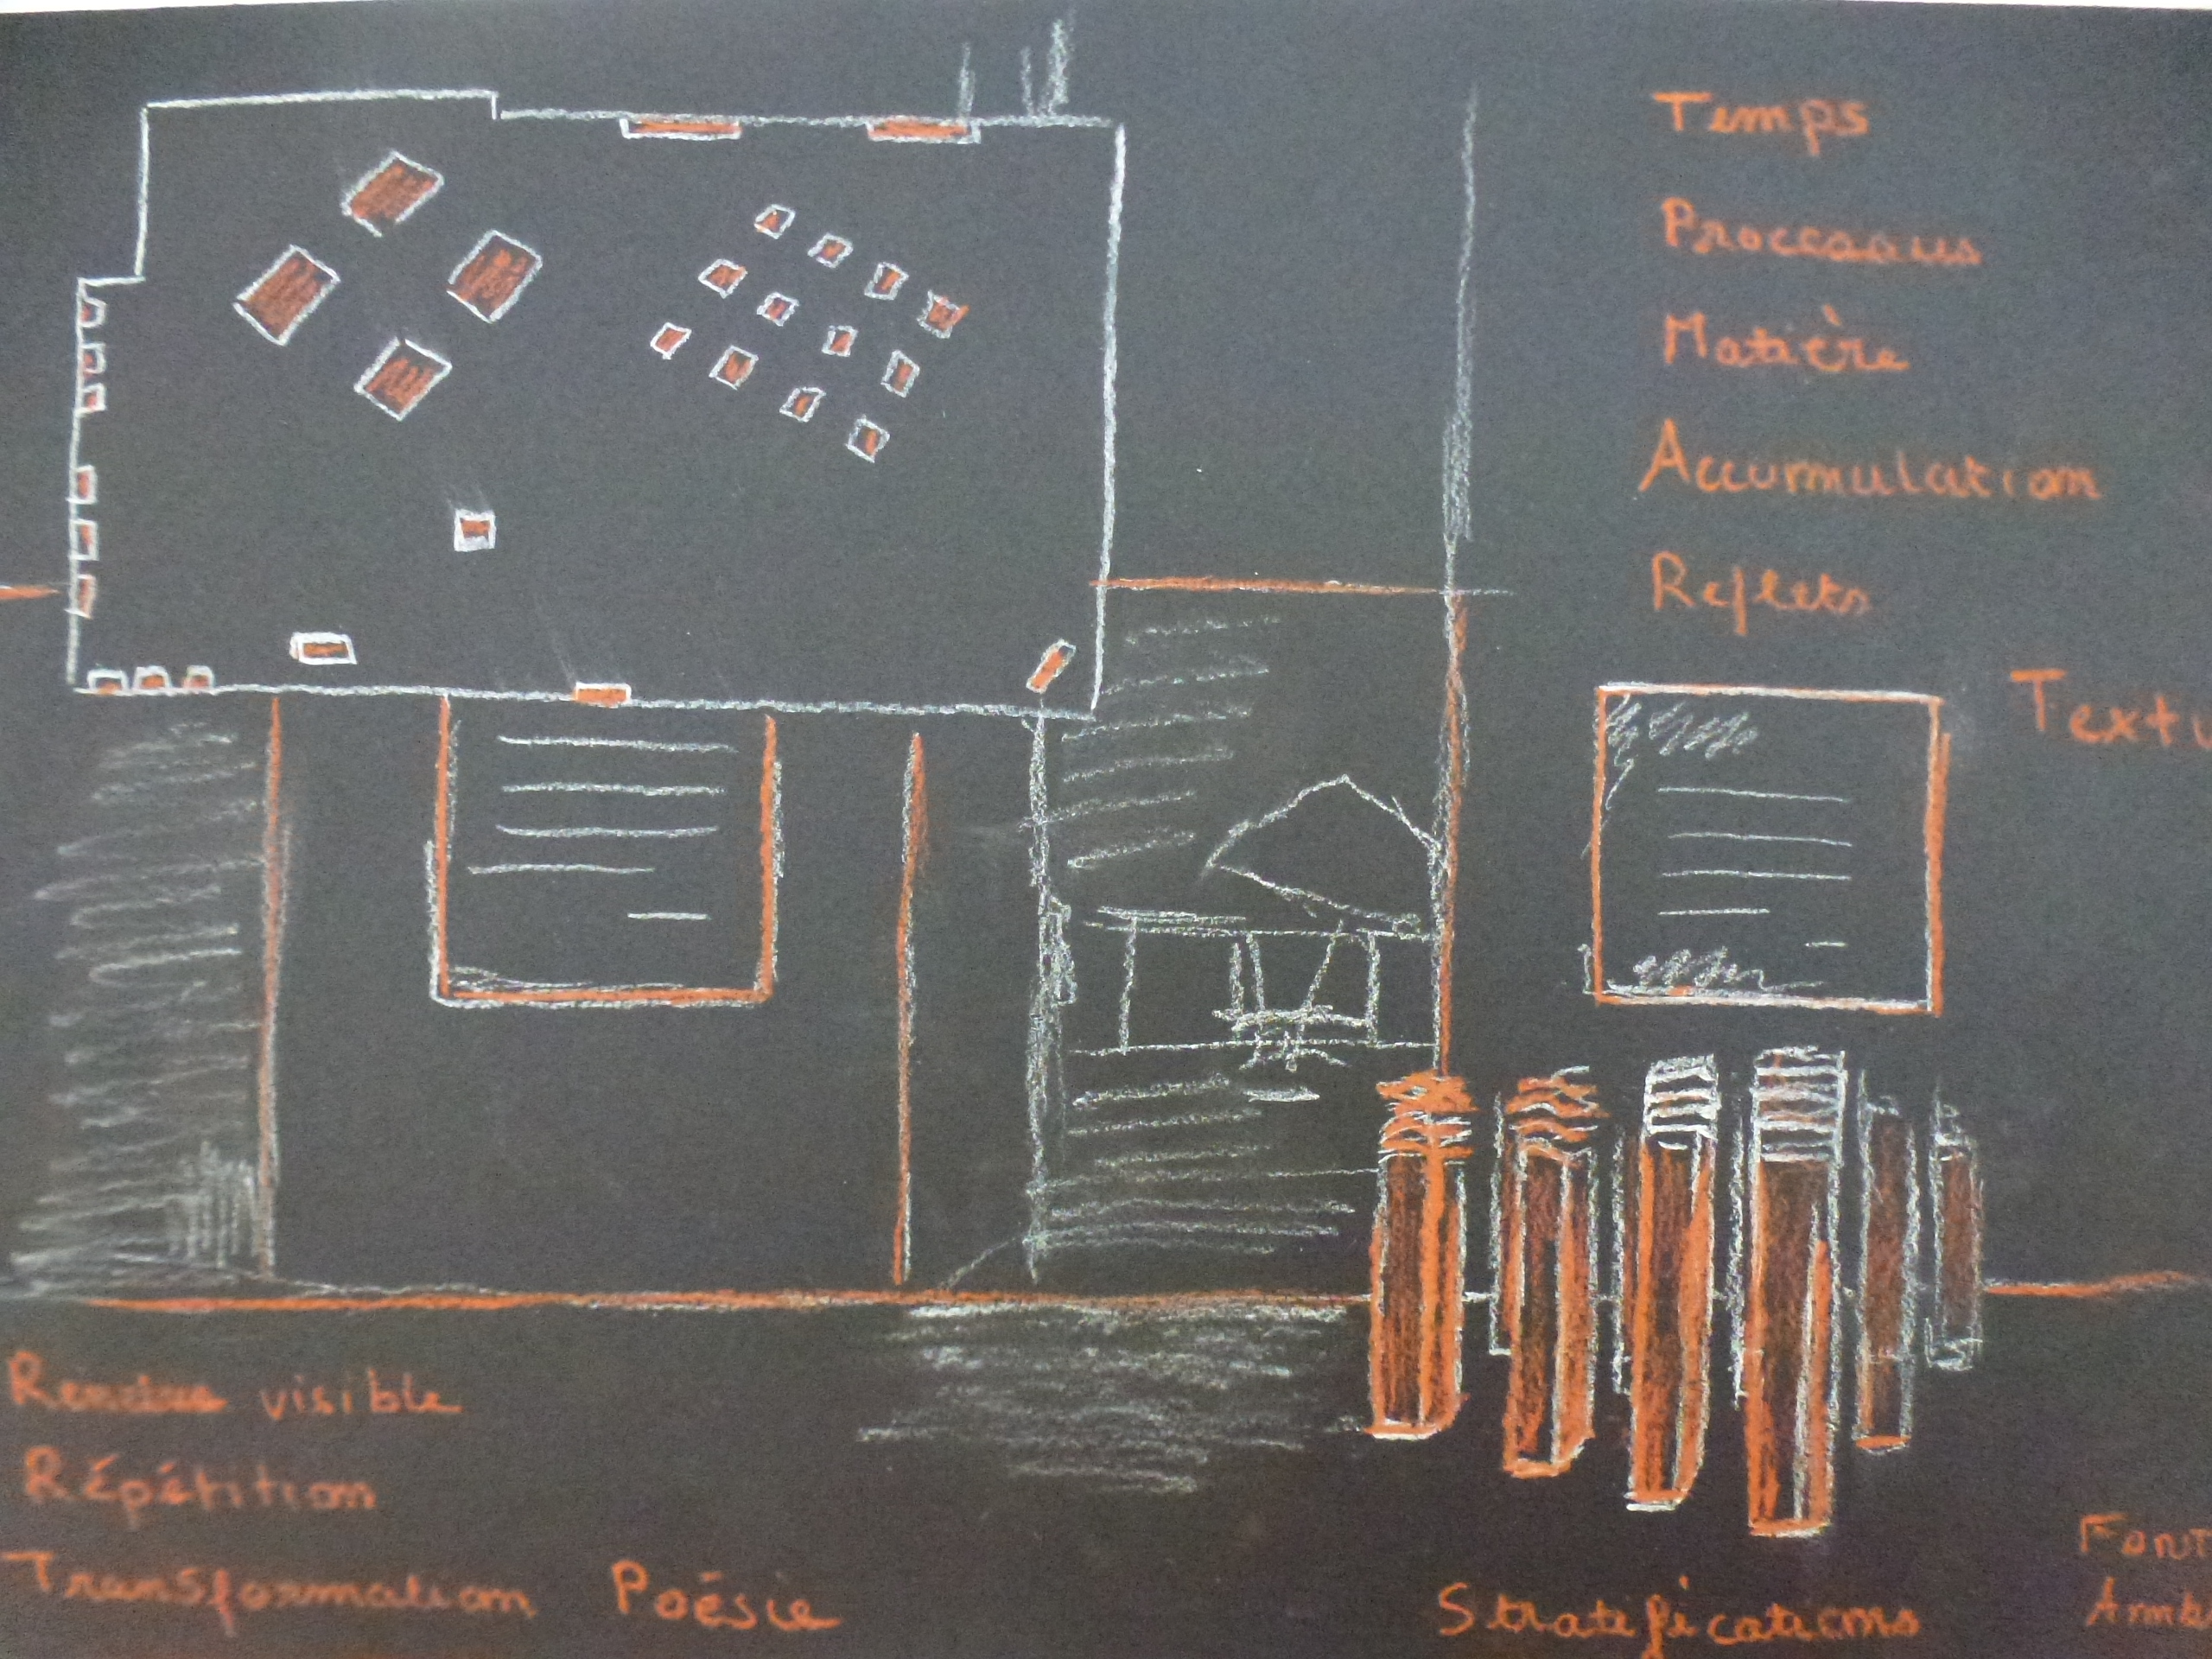 Temps
Processus
Matière
Accumulation
Reflets
Textu
Rendue visible
Répétition
Transformation Poésie
Stratifications